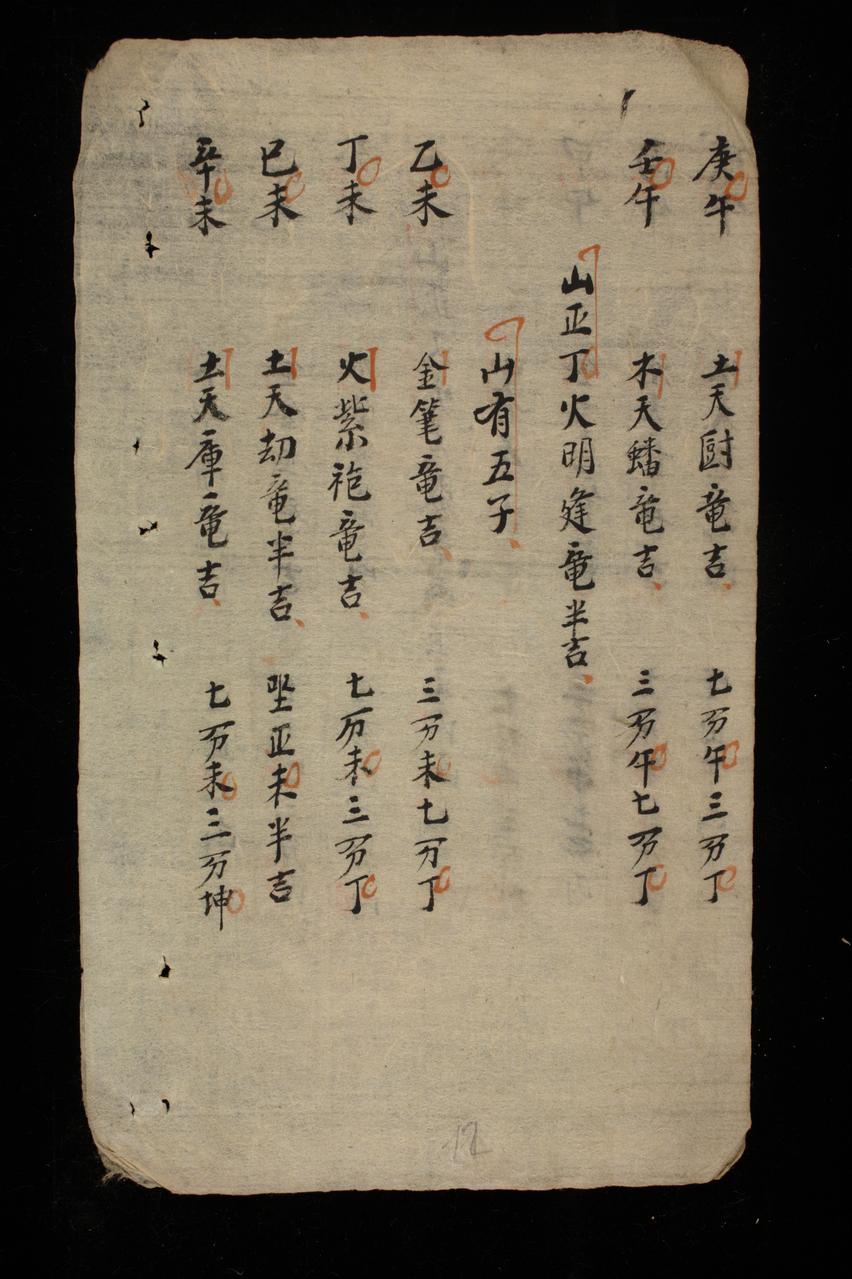 庚午 土天厨竜吉 七分午三分丁
壬午 木天蟠竜吉 三分午七分丁
山正丁火明逢竜半吉
山有五子
乙未 金笔竜吉 三分未七分丁
丁未 火紫袍竜吉 七分未三分丁
巳未 土天劫竜半吉 坐正未半吉
辛未 土天庫竜吉 七分未三分坤
12